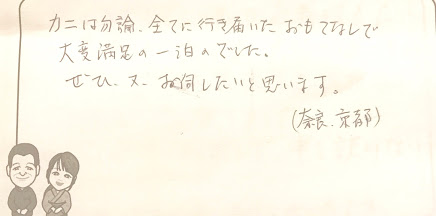 カニは勿論、全てに行き届いたおもてなしで
大変満足の一泊のでした。
ぜひ、又、お伺したいと思います。
(奈良、京都)